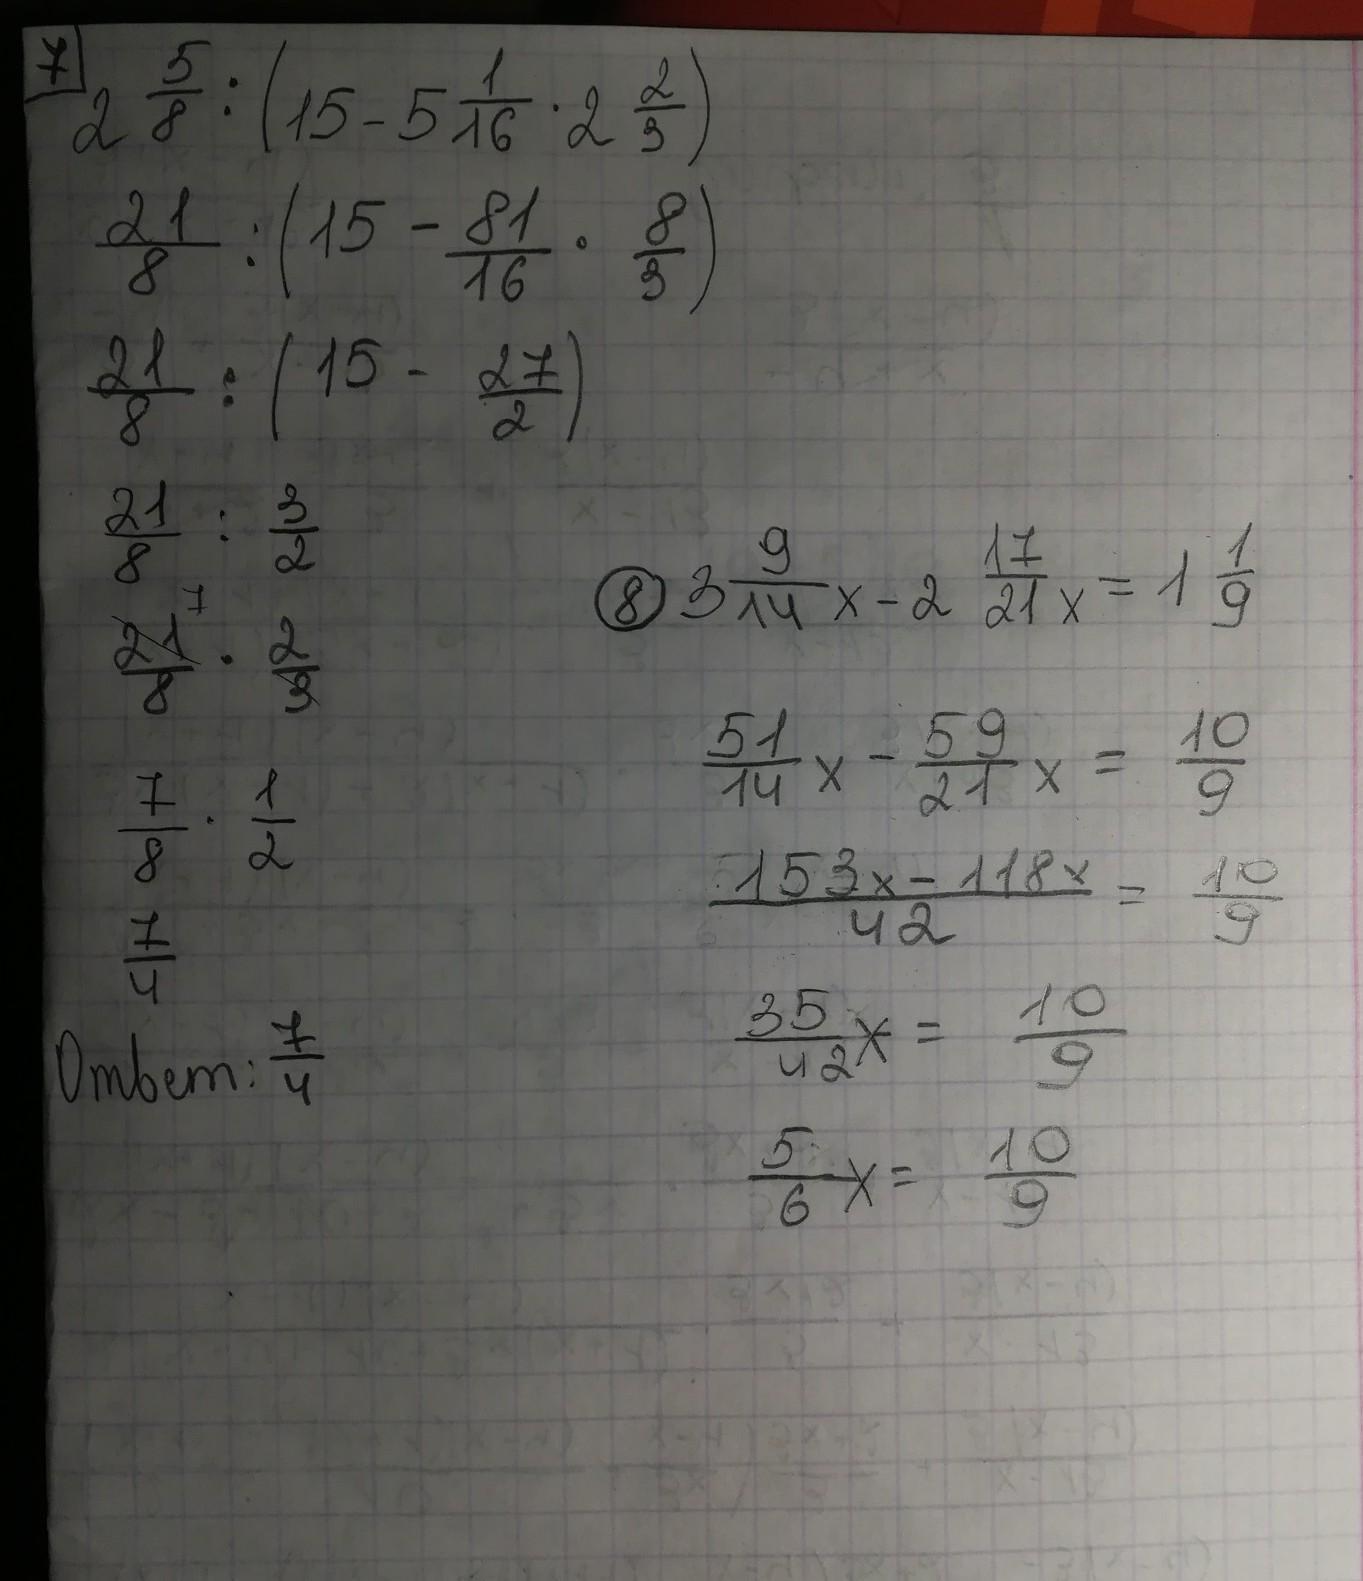 7
2 5/8 : (15 - 5 1/16 · 2 2/3)
21/8 : (15 - 81/16 · 8/3)
21/8 : (15 - 27/2)
21/8 : 3/2
21/8 · 2/3
7
7/8 · 1/2
7/4
Ответ: 7/4
8 3 9/14 x - 2 17/21 x = 1 1/9
51/14 x - 59/21 x = 10/9
153x - 118x / 42 = 10/9
35/42 x = 10/9
5/6 x = 10/9